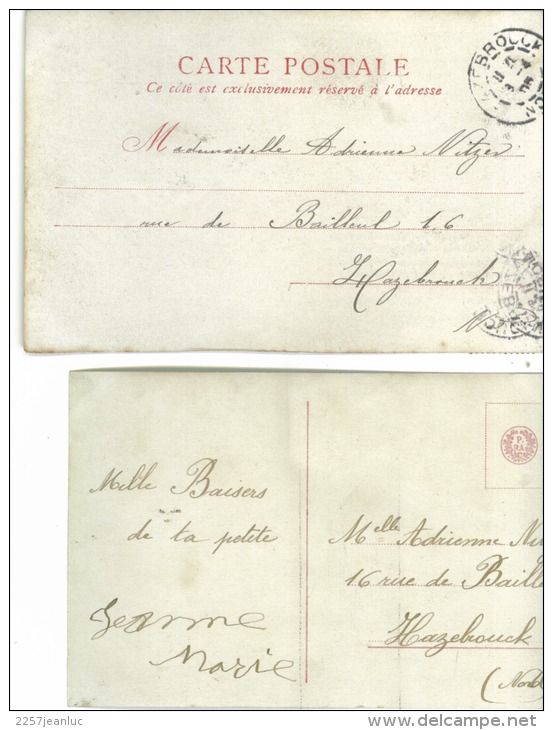 CARTE POSTALE
Ce côté est exclusivement réservé à l'adresse
Mademoiselle Adrienne Nitzer
rue de Bailleul 16
Hazebrouck
N
Mille Baisers
de ta petite
Jeanne
Marie
Melle Adrienne
16 rue de Baille
Hazebrouck
(Nord
2257jeanluc
delcampe.net